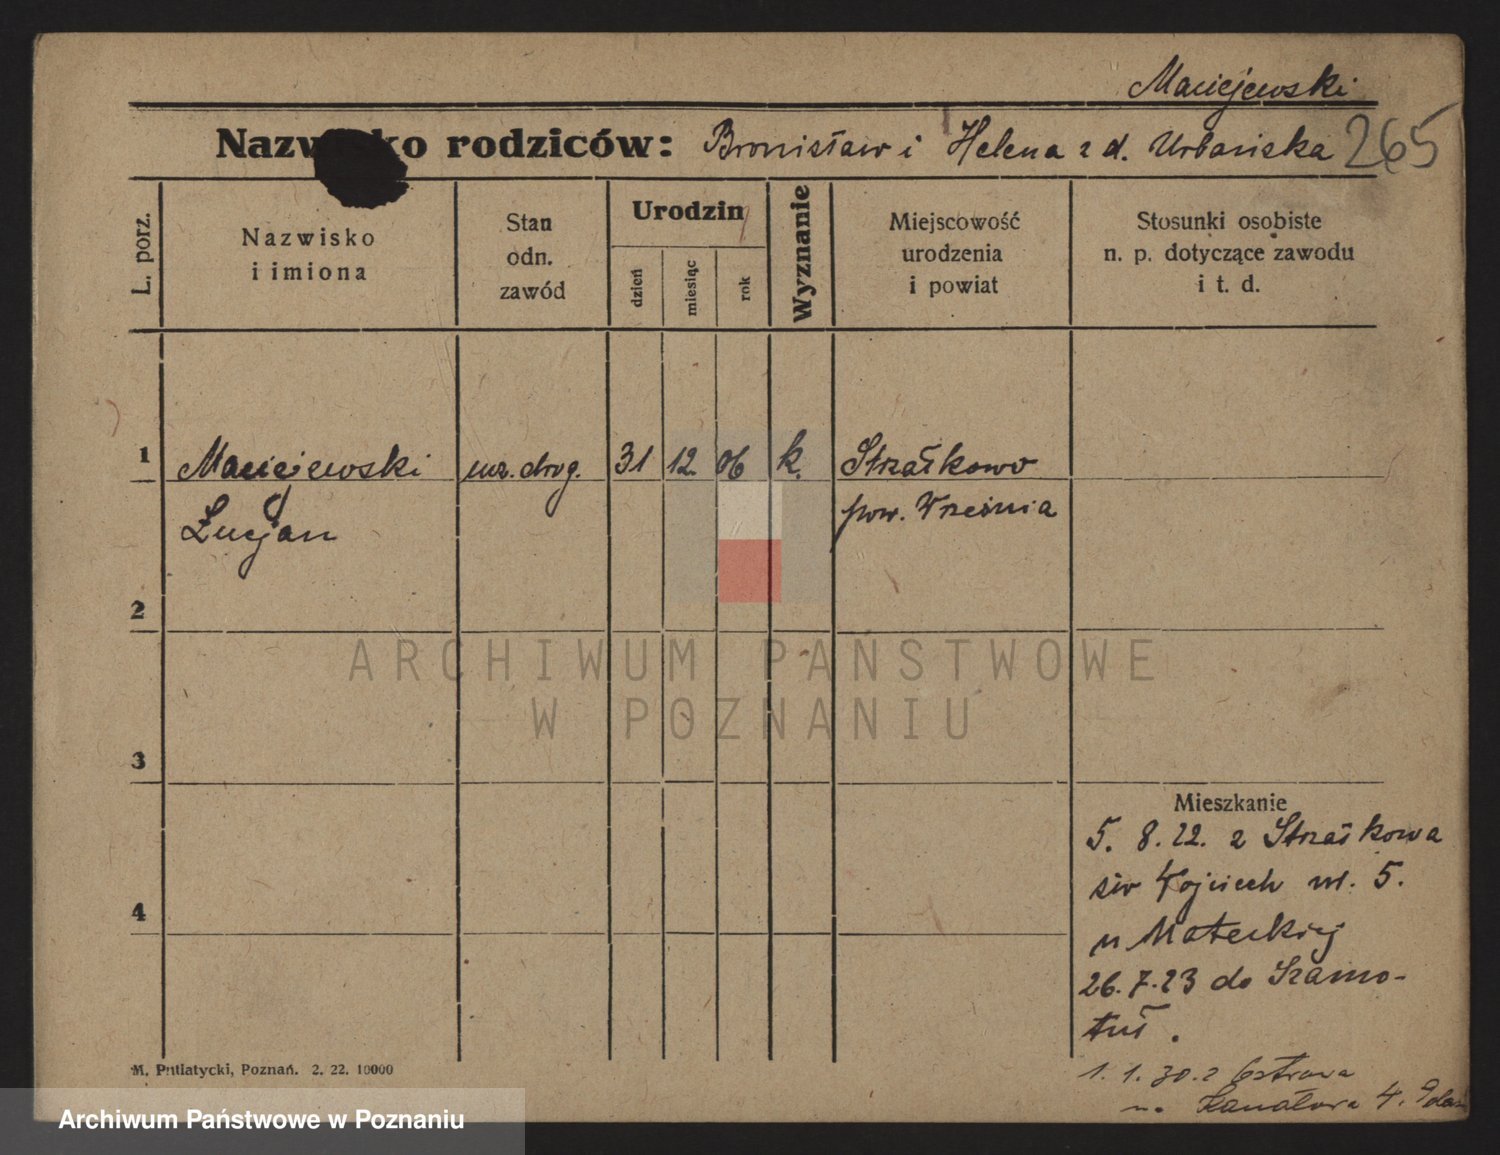 Maciejewski
Nazwisko rodziców: Bronisław i Helena z d. Urbańska 265
L. porz.
Nazwisko
i imiona
Stan
odn.
zawód
Urodzin
dzień
miesiąc
rok
Wyznanie
Miejscowość
urodzenia
i powiat
Stosunki osobiste
n. p. dotyczące zawodu
i t. d.
1 Maciejewski ucz. drog. 31 12. 06 k. Strzałkowo
Lucjan pow. Września
2
3
4
Mieszkanie
5. 8. 22. z Strzałkowa
św Wojciech nr. 5.
u Mateckiej
26. 7. 23 do Szamo-
tuł.
1. 1. 30. z Ostrowa
Kanałowa 4.
M. Putiatycki, Poznań. 2. 22. 10000
ARCHIWUM PAŃSTWOWE
W POZNANIU
Archiwum Państwowe w Poznaniu